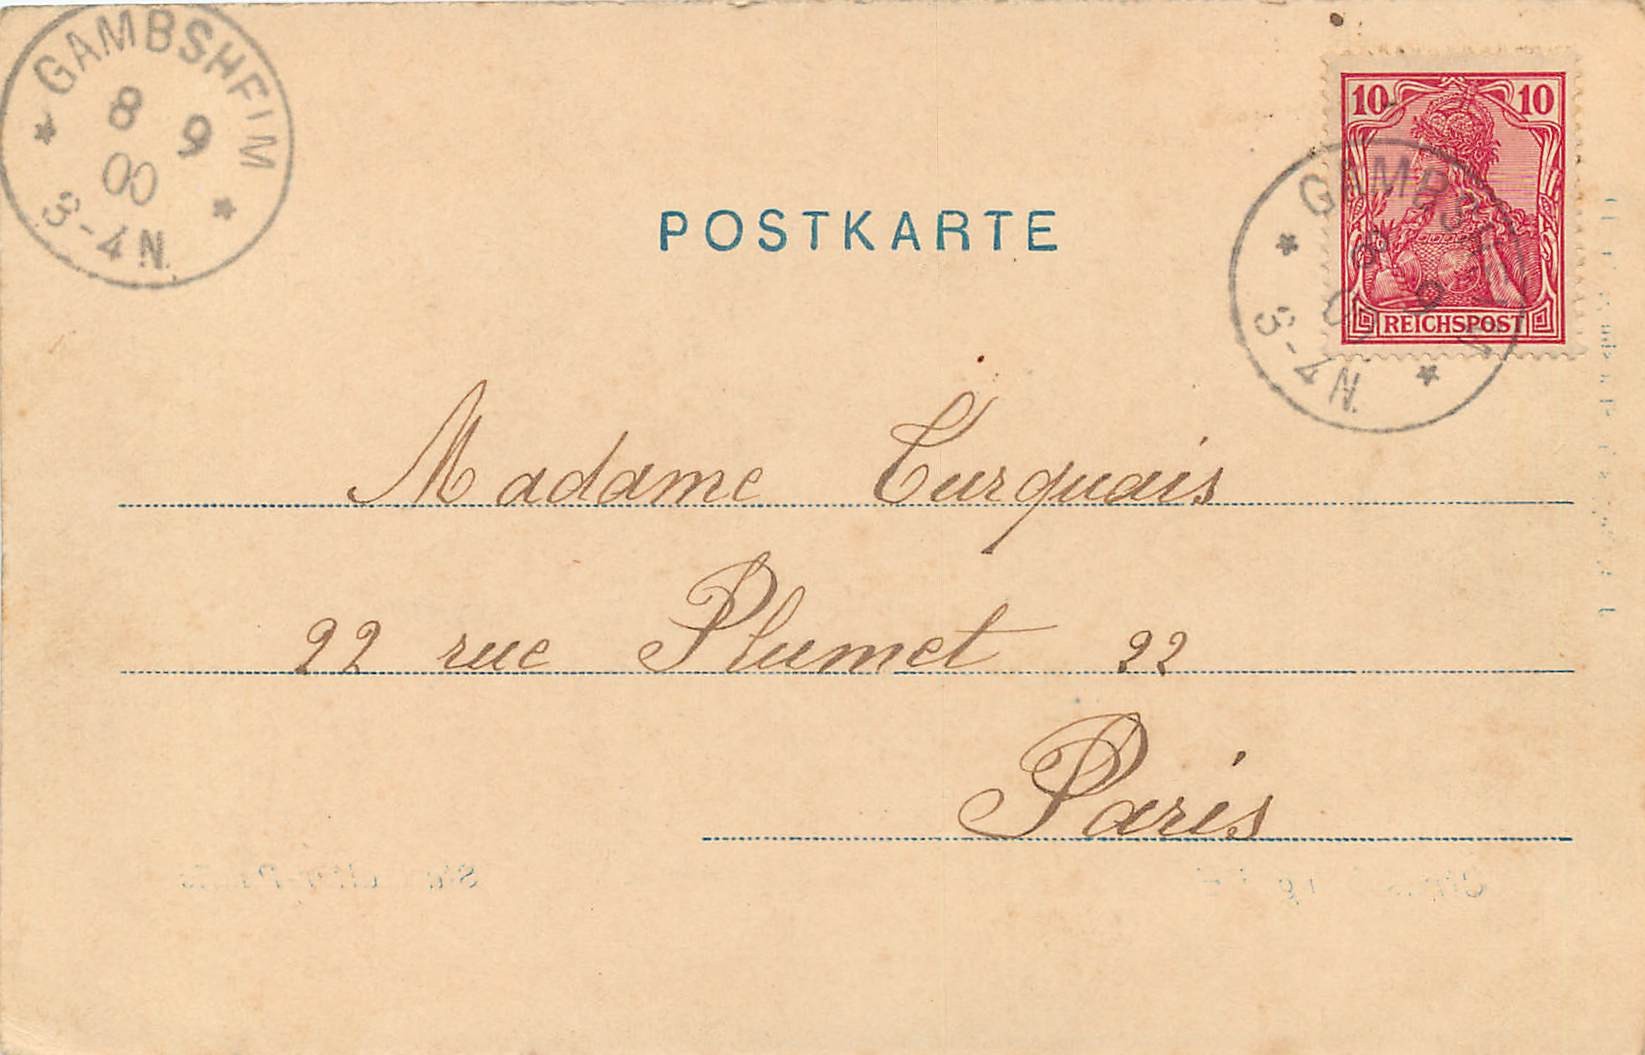 GAMBSHEIM
8 9
00
3-4N.
10 10
REICHSPOST
GAMBSHEIM
8 9
00
3-4N.
POSTKARTE
Madame Turquais
22 rue Plumet 22
Paris